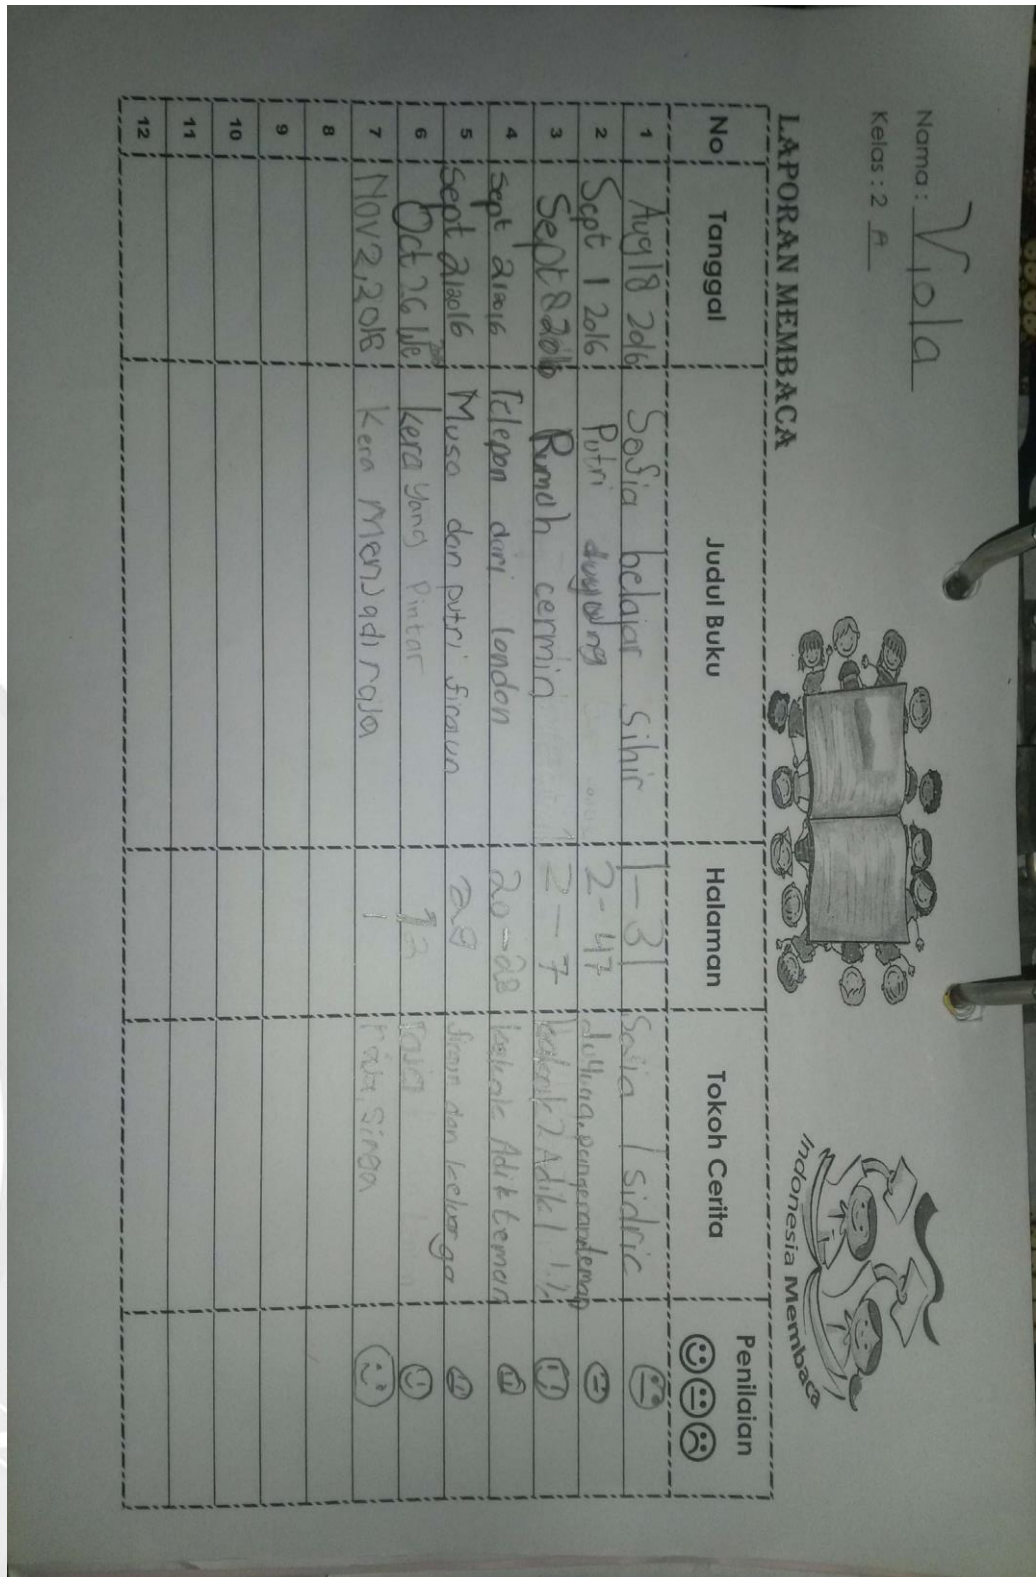 Nama : Viola
Kelas : 2 A
Indonesia Membaca
LAPORAN MEMBACA
No Tanggal Judul Buku Halaman Tokoh Cerita Penilaian
1 Aug 18 2016 Sofia belajar Sihir 1-31 Sofia / sidric
2 Sept 1 2016 Putri duyung 2-47
3 Sept 8 2016 Rumah cermin 2-7
4 Sept 21 2016 Telepon dari london 20-28 kakak Adik teman
5 Sept 21 2016 Musa dan putri firaun 28 firaun dan keluarga
6 Oct 26 Kera yang Pintar
7 Nov 2, 2016 Kera Menjadi raja 1 raja, Singa
8
9
10
11
12